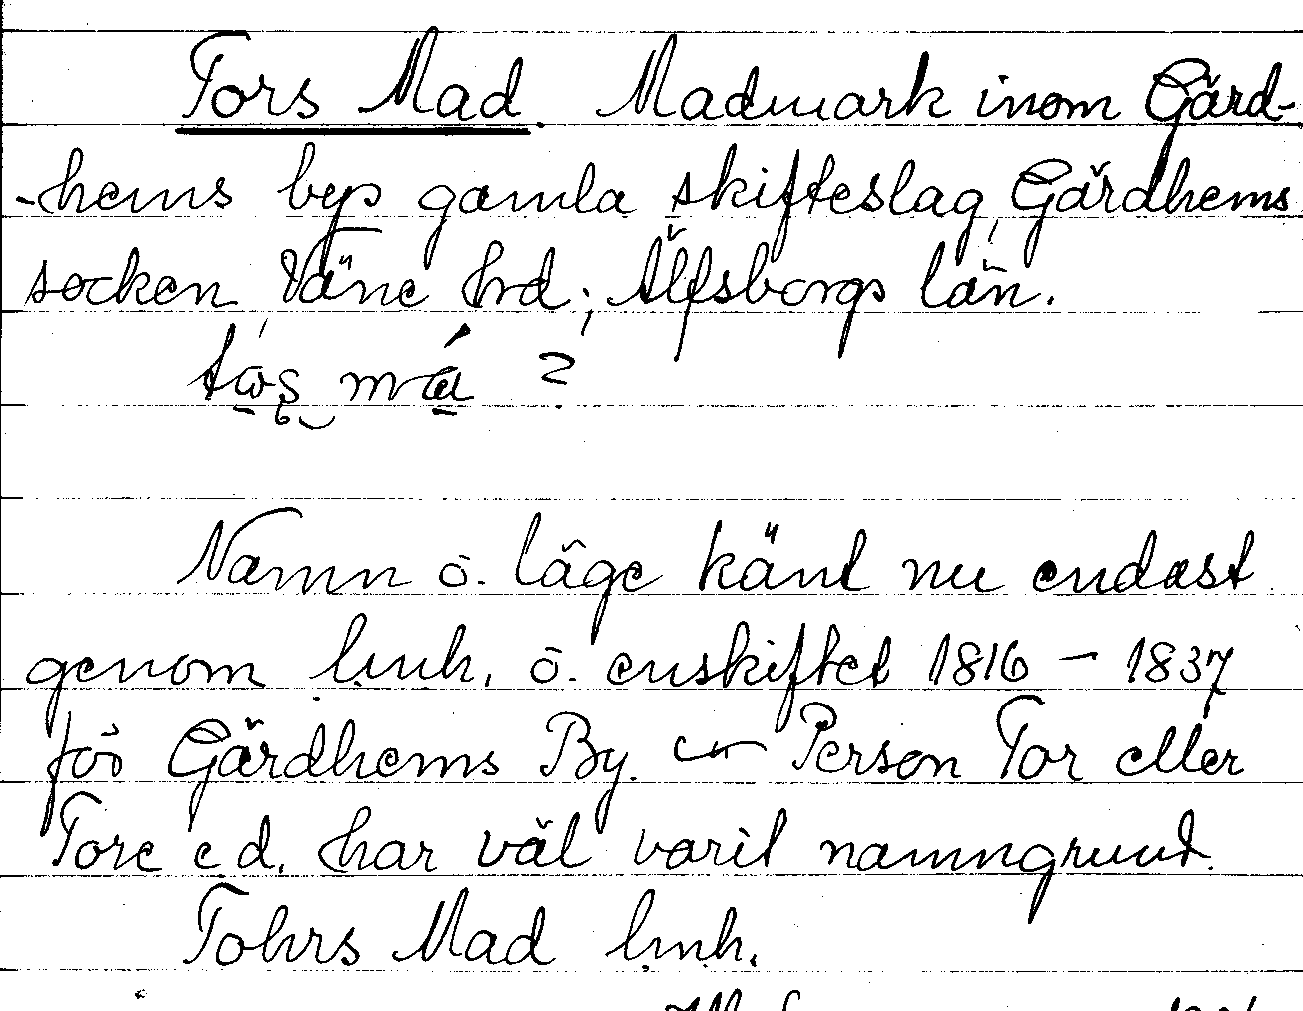 Tors Mad. Madmark inom Gärd-
-hems bys gamla skifteslag, Gärdhems
socken, Väne hrd; Älfsborgs län.
Namn o. läge känt nu endast
genom lmh. o. enskiftet 1816 – 1837
för Gärdhems By. – Person Tor eller
Tore e d. har väl varit namngrund.
Tohrs Mad lmh.